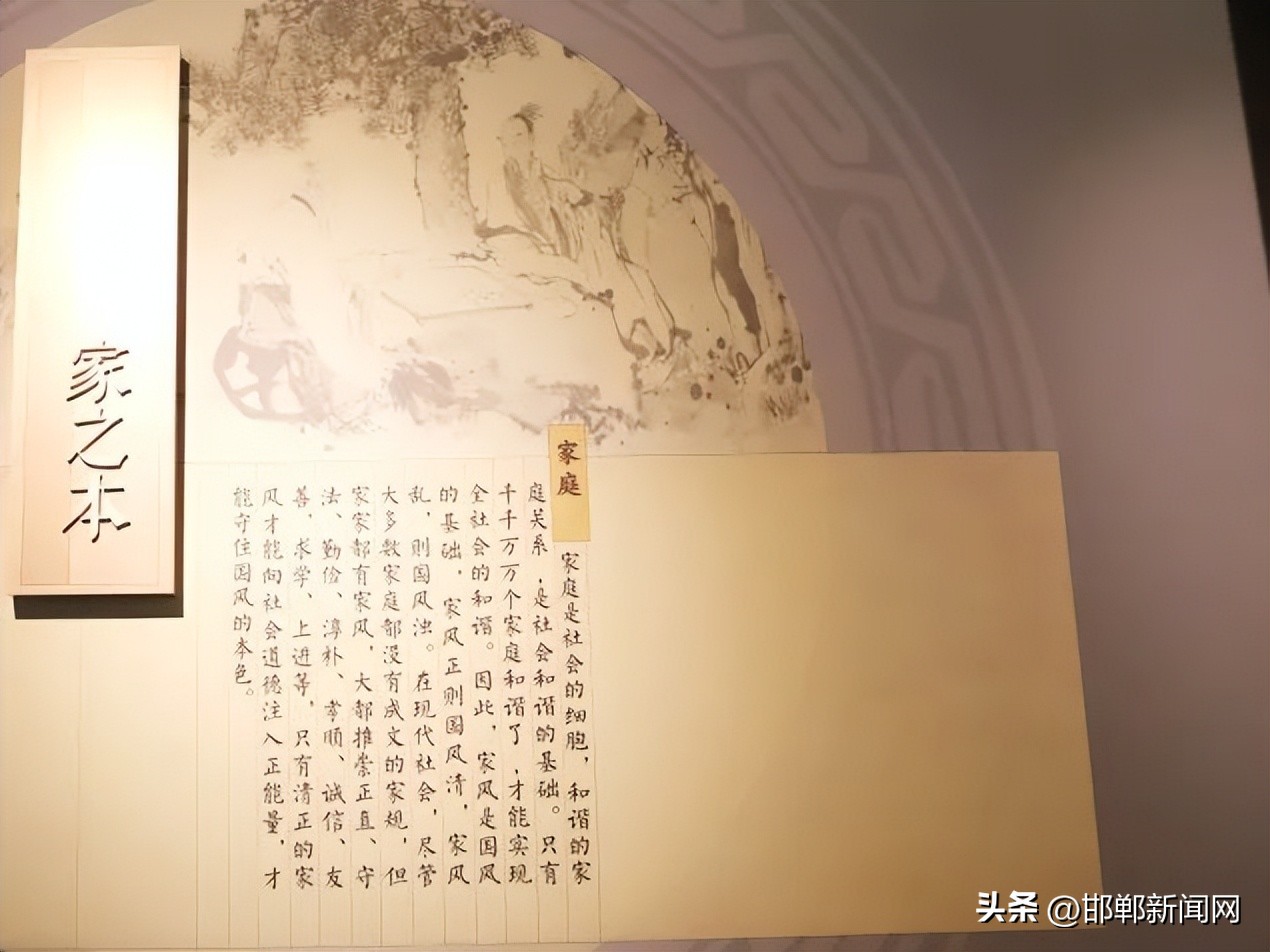 家之本
家庭
家庭是社会的细胞，和谐的家
庭关系，是社会和谐的基础。只有
千千万万个家庭和谐了，才能实现
全社会的和谐。因此，家风是国风
的基础，家风正则国风清，家风
乱，则国风浊。在现代社会，尽管
大多数家庭都没有成文的家规，但
家家都有家风，大都推崇正直、守
法、勤俭、淳朴、孝顺、诚信、友
善，求学、上进等，只有清正的家
风才能向社会道德注入正能量，才
能守住国风的本色。
头条 @邯郸新闻网